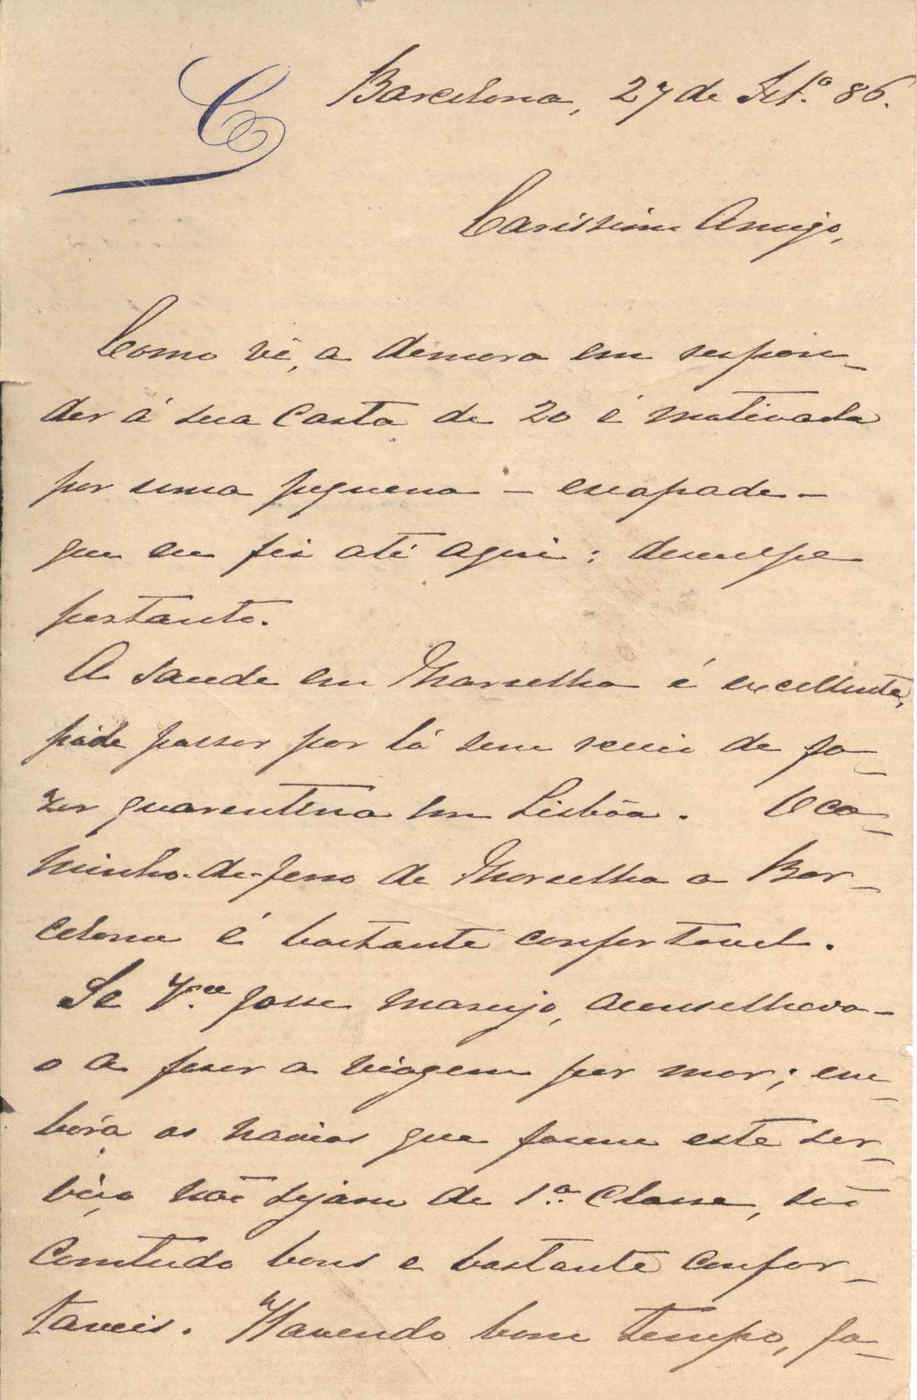 C
Barcelona, 27 de Set.º 86.
Carissimo Amigo,
Como vê, a demora em respon-
der á sua carta de 20 é motivada
por uma pequena - escapade -
que eu fiz até aqui; desculpe
portanto.
A saude em Marselha é excellente,
póde passar por lá sem receio de fa-
zer quarentena em Lisbôa. O ca-
minho-de-ferro de Marselha a Bar-
celona é bastante confortavel.
Se V.cê fosse marujo, aconselhava-
o a fazer a viagem por mar; em-
bóra os navios que fazem este ser-
viço não sejam de 1.ª Classe, são
comtudo bons e bastante confor-
taveis. Havendo bom tempo, fa-